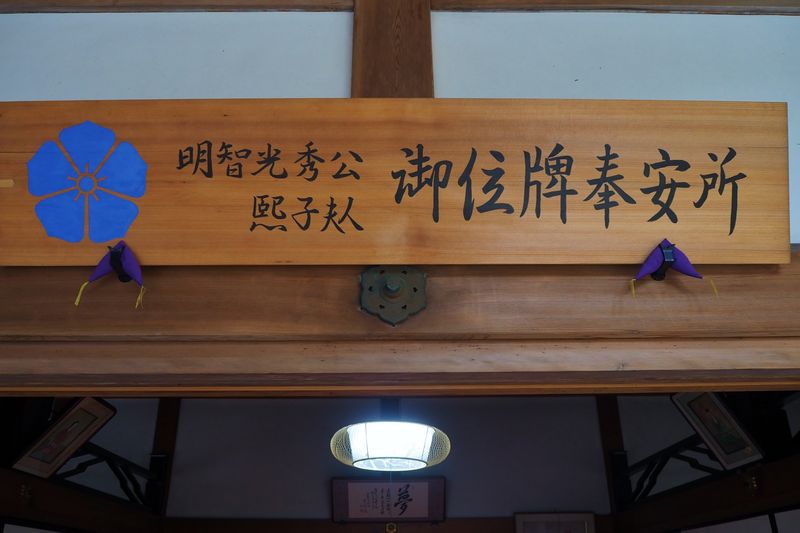 明智光秀公
熙子夫人
御位牌奉安所
夢